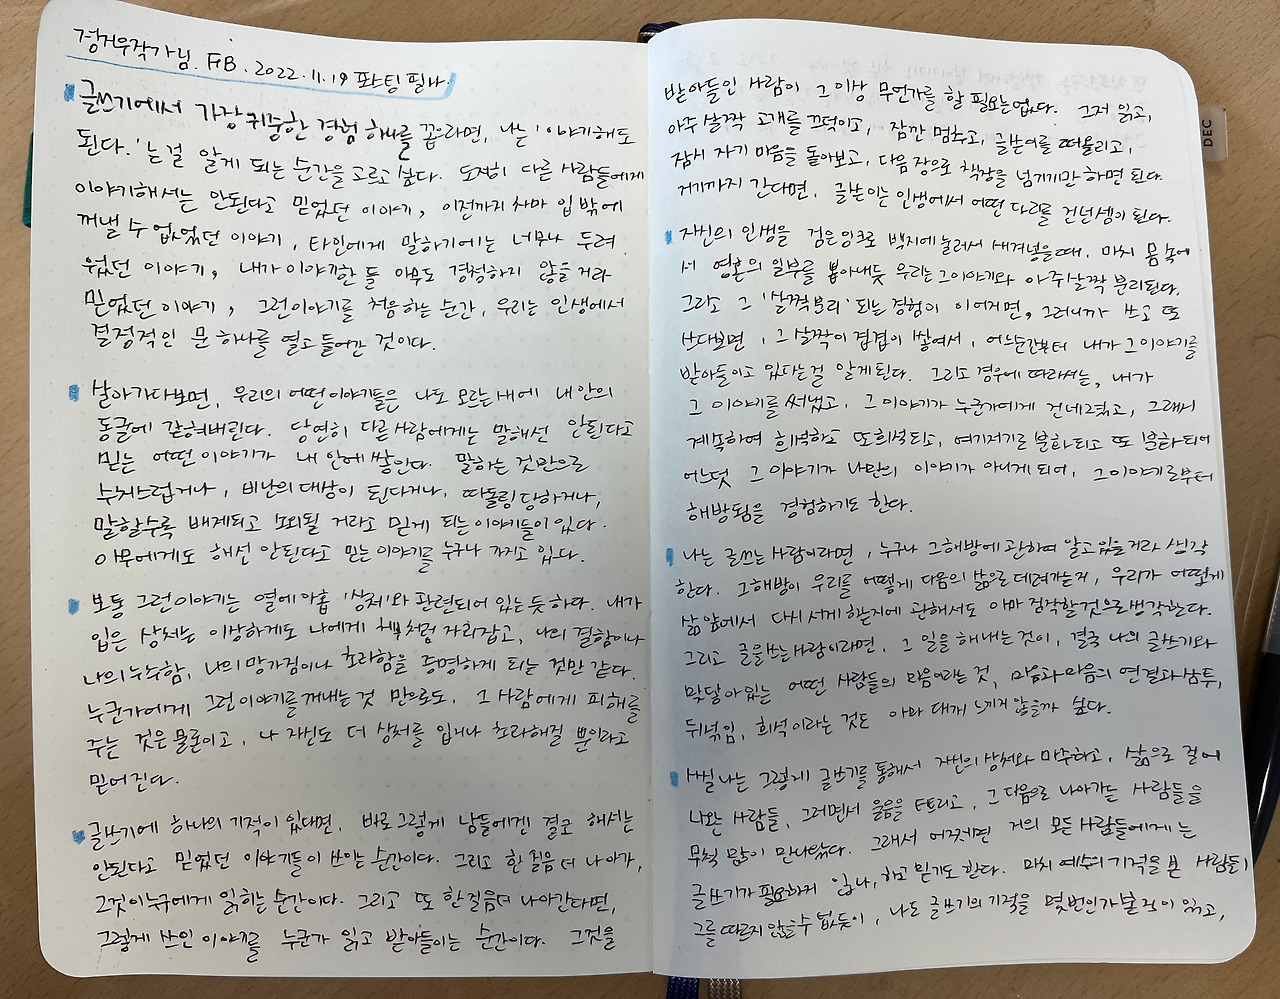 정지우작가님. FB. 2022. 11. 19 포스팅 필사.
글쓰기에서 가장 귀중한 경험 하나를 꼽으라면, 나는 '이야기해도
된다.'는걸 알게 되는 순간을 고르고 싶다. 도저히 다른 사람들에게
이야기해서는 안된다고 믿었던 이야기, 이전까지 차마 입 밖에
꺼낼 수 없었던 이야기, 타인에게 말하기에는 너무나 두려
웠던 이야기, 내가 이야기한들 아무도 경청하지 않을거라
믿었던 이야기, 그런이야기를 처음 하는 순간, 우리는 인생에서
결정적인 문 하나를 열고 들어간 것이다.
살아가다보면, 우리의 어떤이야기들은 나도 모르는새에 내 안의
동굴에 갇혀버린다. 당연히 다른사람에게는 말해선 안된다고
믿는 어떤 이야기가 내 안에 쌓인다. 말하는 것만으로
수치스럽거나, 비난의 대상이 된다거나, 따돌림 당하거나,
말할수록 배제되고 소외될 거라고 믿게 되는 이야기들이 있다.
아무에게도 해선 안된다고 믿는 이야기를 누구나 가지고 있다.
보통 그런이야기는 열에 아홉 '상처'와 관련되어 있는 듯 하다. 내가
입은 상처는 이상하게도 나에게 처럼 자리잡고, 나의 결함이나
나의 누추함, 나의 망가짐이나 초라함을 증명하게 되는 것만 같다.
누군가에게 그런 이야기를 꺼내는 것 만으로도, 그 사람에게 피해를
주는 것은 물론이고, 나 자신도 더 상처를 입거나 초라해질 뿐이라고
믿어진다.
글쓰기에 하나의 기적이 있다면, 바로 그렇게 남들에겐 결코 해서는
안된다고 믿었던 이야기들이 쓰이는 순간이다. 그리고 한 걸음 더 나아가,
그것이 누구에게 읽히는 순간이다. 그리고 또 한걸음더 나아간다면,
그렇게 쓰인 이야기를 누군가 읽고 받아들이는 순간이다. 그것을
받아들인 사람이 그 이상 무언가를 할 필요는없다. 그저 읽고,
아주 살짝 고개를 끄덕이고, 잠깐 멈추고, 글쓴이를 떠올리고,
잠시 자기 마음을 돌아보고, 다음 장으로 책장을 넘기기만 하면 된다.
거기까지 간다면, 글쓴이는 인생에서 어떤 다리를 건넌셈이 된다.
자신의 인생을 검은잉크로 백지에 눌러서 새겨넣을때, 마치 몸 속에
서 영혼의 일부를 뽑아내듯 우리는 그이야기와 아주 살짝 분리된다.
그리고 그 '살짝분리' 되는 경험이 이어지면, 그러니까 쓰고 또
쓰다보면, 그 살짝이 겹겹이 쌓여서, 어느순간부터 내가 그 이야기를
받아들이고 있다는걸 알게된다. 그리고 경우에 따라서는, 내가
그 이야기를 써냈고, 그 이야기가 누군가에게 건네졌고, 그래서
계속하여 희석하고 또희석되고, 여기저기로 분화되고 또 분화되어
어느덧 그 이야기가 나만의 이야기가 아니게 되어, 그이야기로부터
해방됨을 경험하기도 한다.
나는 글쓰는 사람이라면, 누구나 그해방에 관하여 알고있을거라 생각
한다. 그해방이 우리를 어떻게 다음의 삶으로 데려가는지, 우리가 어떻게
삶 앞에서 다시 서게 하는지에 관해서도 아마 짐작할것으로생각한다.
그리고 글을쓰는사람이라면, 그 일을 해내는 것이, 결국 나의 글쓰기와
맞닿아있는 어떤 사람들의 마음이라는 것, 마음과마음의 연결과삼투,
뒤섞임, 희석이라는 것도 아마 대개 느끼지 않을까 싶다.
사실 나는 그렇게 글쓰기를 통해서 자신의 상처와 마주하고, 삶으로 걸어
나오는 사람들, 그러면서 울음을 터트리고, 그 다음으로 나아가는 사람들을
무척 많이 만나왔다. 그래서 어쩌면 거의 모든 사람들에게는
글쓰기가 필요하지 않나, 하고 믿기도 한다. 마치 예수의 기적을 본 사람들이
그를 따르지 않을수 없듯이, 나도 글쓰기의 기적을 몇번인가 본적이 있고,
DEC